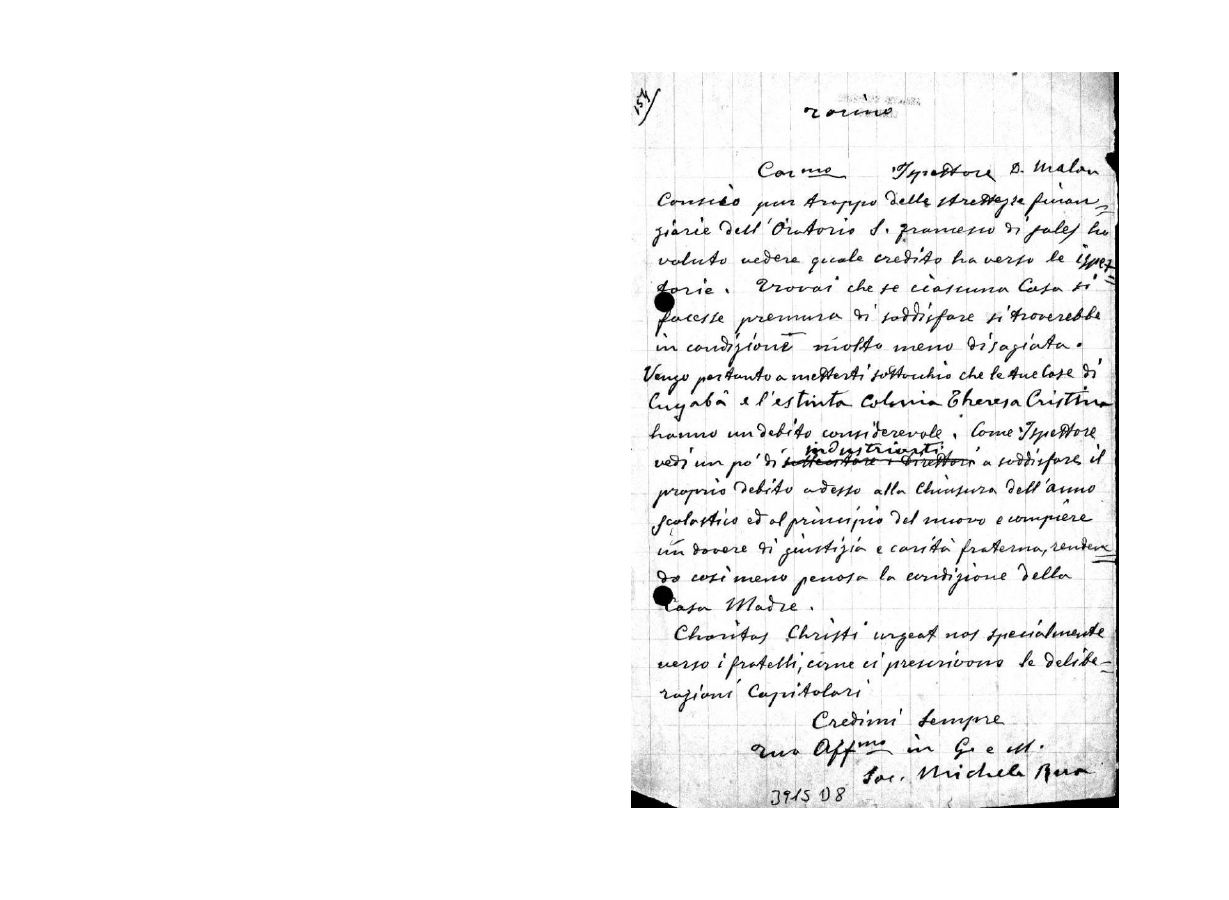 154
Torino
Car.mo Ispettore D. Malan
Conscio pur troppo delle strettezze finan=
ziarie dell'Oratorio S. Francesco di Sales ho
voluto vedere quale credito ha verso le ispet=
torie. Trovai che se ciascuna Casa si
facesse premura di soddisfare si troverebbe
in condizione molto meno disagiata.
Vengo pertanto a metterti sottocchio che le tue Case di
Cuyabà e l'estinta Colonia Theresa Cristina
hanno un debito considerevole. Come Ispettore
industriarti
vedi un po' di a soddisfare il
proprio debito adesso alla chiusura dell'anno
scolastico ed al principio del nuovo e compiere
un dovere di giustizia e carità fraterna, renden=
do così meno penosa la condizione della
Casa Madre.
Charitas Christi urgeat nos specialmente
verso i fratelli, come ci prescrivono le delibe=
razioni Capitolari
Credimi sempre
Tuo Aff.mo in G. e M.
Sac. Michele Rua
3915 D8